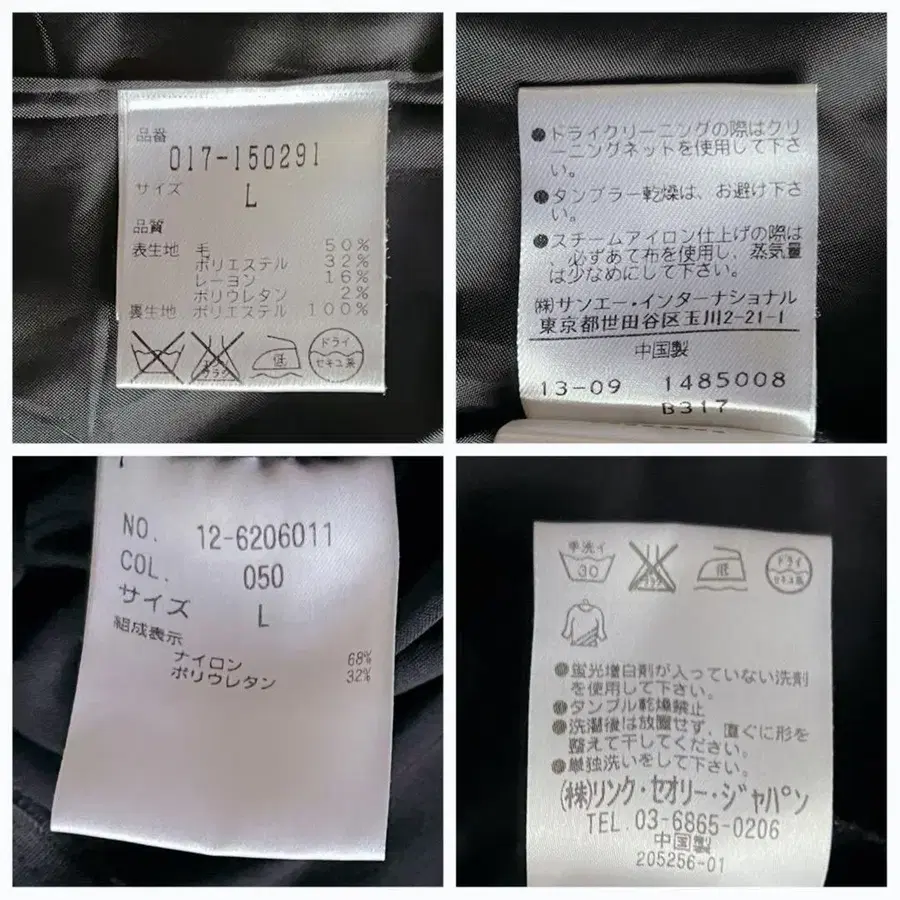 品番
017-150291
サイズ
L
品質
表生地 毛 50%
ポリエステル 32%
レーヨン 16%
ポリウレタン 2%
裏生地 ポリエステル 100%
低
ドライ
セキユ系
●ドライクリーニングの際はクリ
ーニングネットを使用して下さ
い。
●タンブラー乾燥は、お避け下さ
い。
●スチームアイロン仕上げの際は
、必ずあて布を使用し、蒸気量
は少なめにして下さい。
㈱サンエー・インターナショナル
東京都世田谷区玉川2-21-1
中国製
13-09 1485008
B317
NO. 12-6206011
COL. 050
サイズ L
組成表示
ナイロン 68%
ポリウレタン 32%
手洗イ
30
低
ドライ
セキユ系
●蛍光増白剤が入っていない洗剤
を使用して下さい。
●タンブル乾燥禁止
●洗濯後は放置せず、直ぐに形を
整えて干してください。
●単独洗いをして下さい。
(株)リンク・セオリー・ジャパン
TEL.03-6865-0206
中国製
205256-01